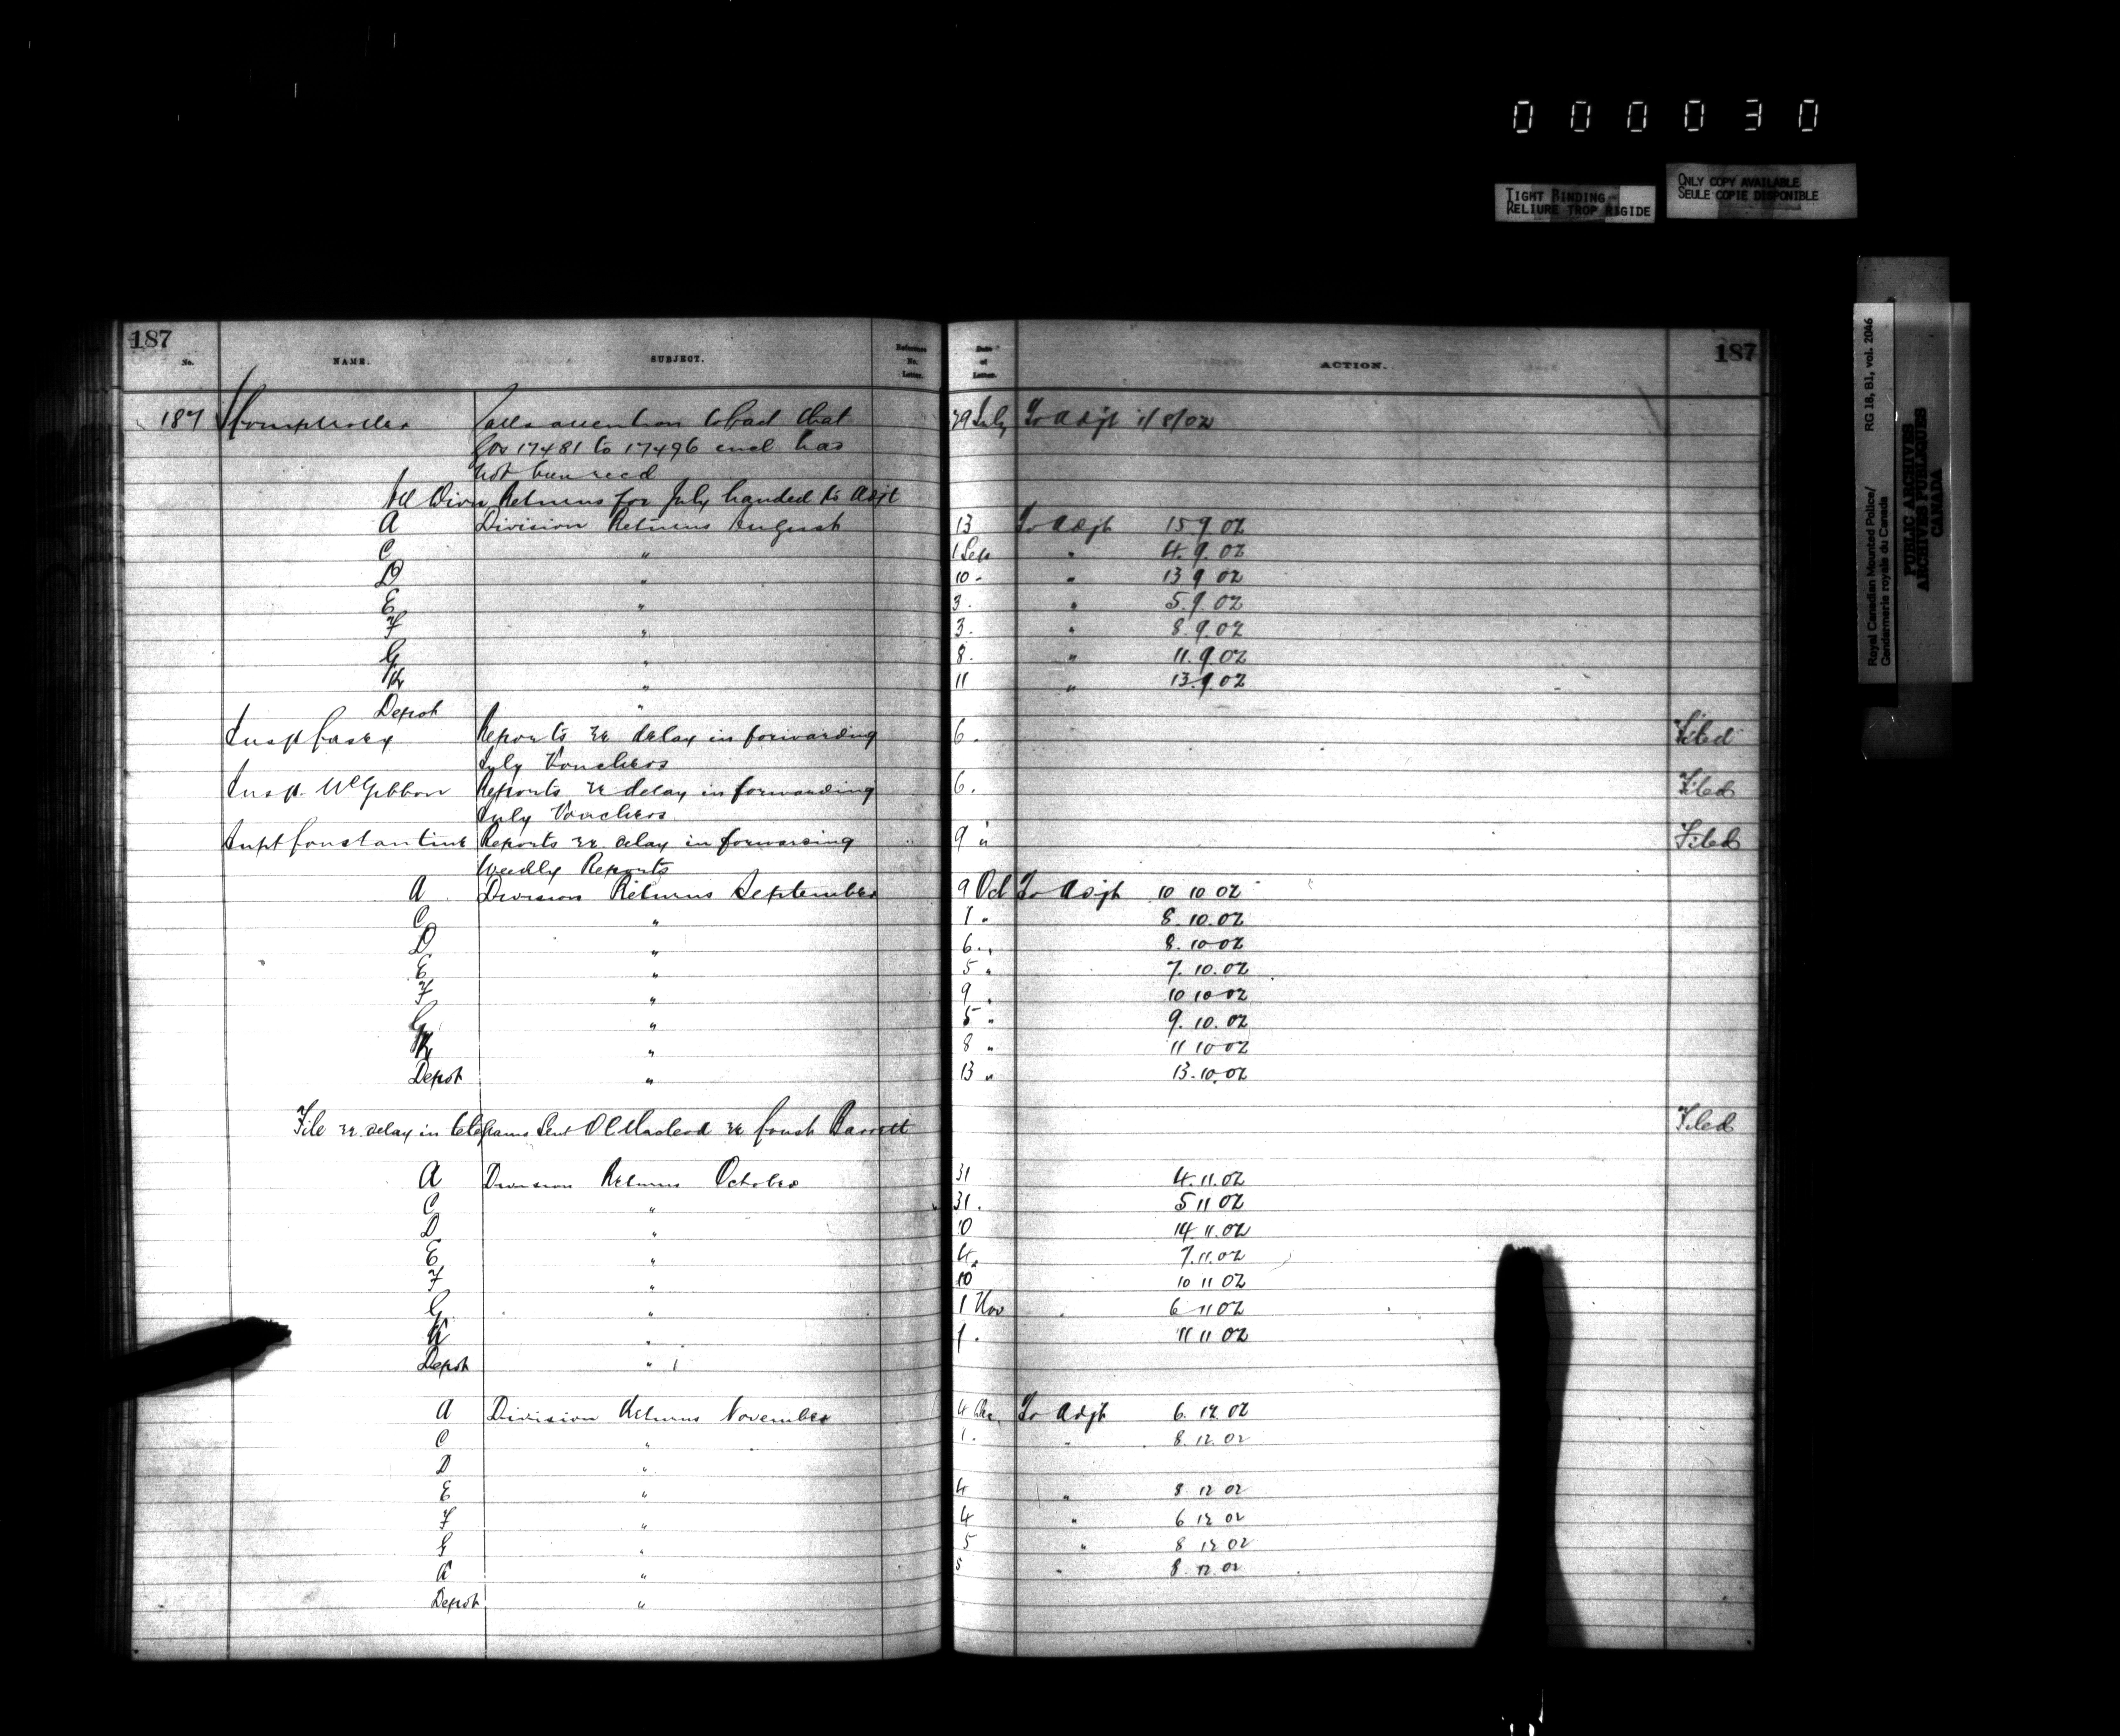 000030
TIGHT BINDING
RELIURE TROP RIGIDE
ONLY COPY AVAILABLE
SEULE COPIE DISPONIBLE
Royal Canadian Mounted Police/
Gendarmerie royale du Canada
RG 18, B1, vol. 2046
PUBLIC ARCHIVES
ARCHIVES PUBLIQUES
CANADA
187 187
No. NAME. SUBJECT. Reference No. Letter. Date of Letter. ACTION.
187 Comptroller Calls attention to fact that 29 July To Adjt 1/8/02
17481 to 17496 encl has
not been recd
All Divn Returns for July handed to Adjt
A Division Returns August 13 To Adjt 15 9 02
C " 1 Sep " 4. 9. 02
D " 10 " 13 9 02
E " 3. " 5. 9. 02
F " 3. " 8. 9. 02
G " 8. " 11. 9 02
K " 11 " 13. 9 02
Depot "
Insp Casey Reports re delay in forwarding 6. Filed
July Vouchers
Insp. McGibbon Reports re delay in forwarding 6. Filed
July Vouchers
Supt Constantine Reports re. delay in forwarding 9 " Filed
Weekly Reports
A Division Returns September 9 Oct To Adjt 10 10 02
C " 1. 8. 10. 02
D " 6. " 8. 10 02
E " 5 " 7. 10. 02
F " 9 " 10 10 02
G " 5 " 9. 10. 02
K " 8 " 11 10 02
Depot " 13 " 13. 10. 02
File re. delay in telegrams sent OC Macleod re Const Barrett Filed
A Division Returns October 31 4. 11. 02
C " 31. 5 11 02
D " 10 14 11. 02
E " 4. 7. 11. 02
F " 10 10 11 02
G " 1 Nov 6 11 02
K " 1. 11 11 02
Depot "
A Division Returns November 4 Dec. To Adjt 6. 12. 02
C " 1. " 8. 12. 02
D "
E " 4 " 8. 12 02
F " 4 " 6 12 02
G " 5 " 8 12 02
K " 5 " 8. 12. 02
Depot "